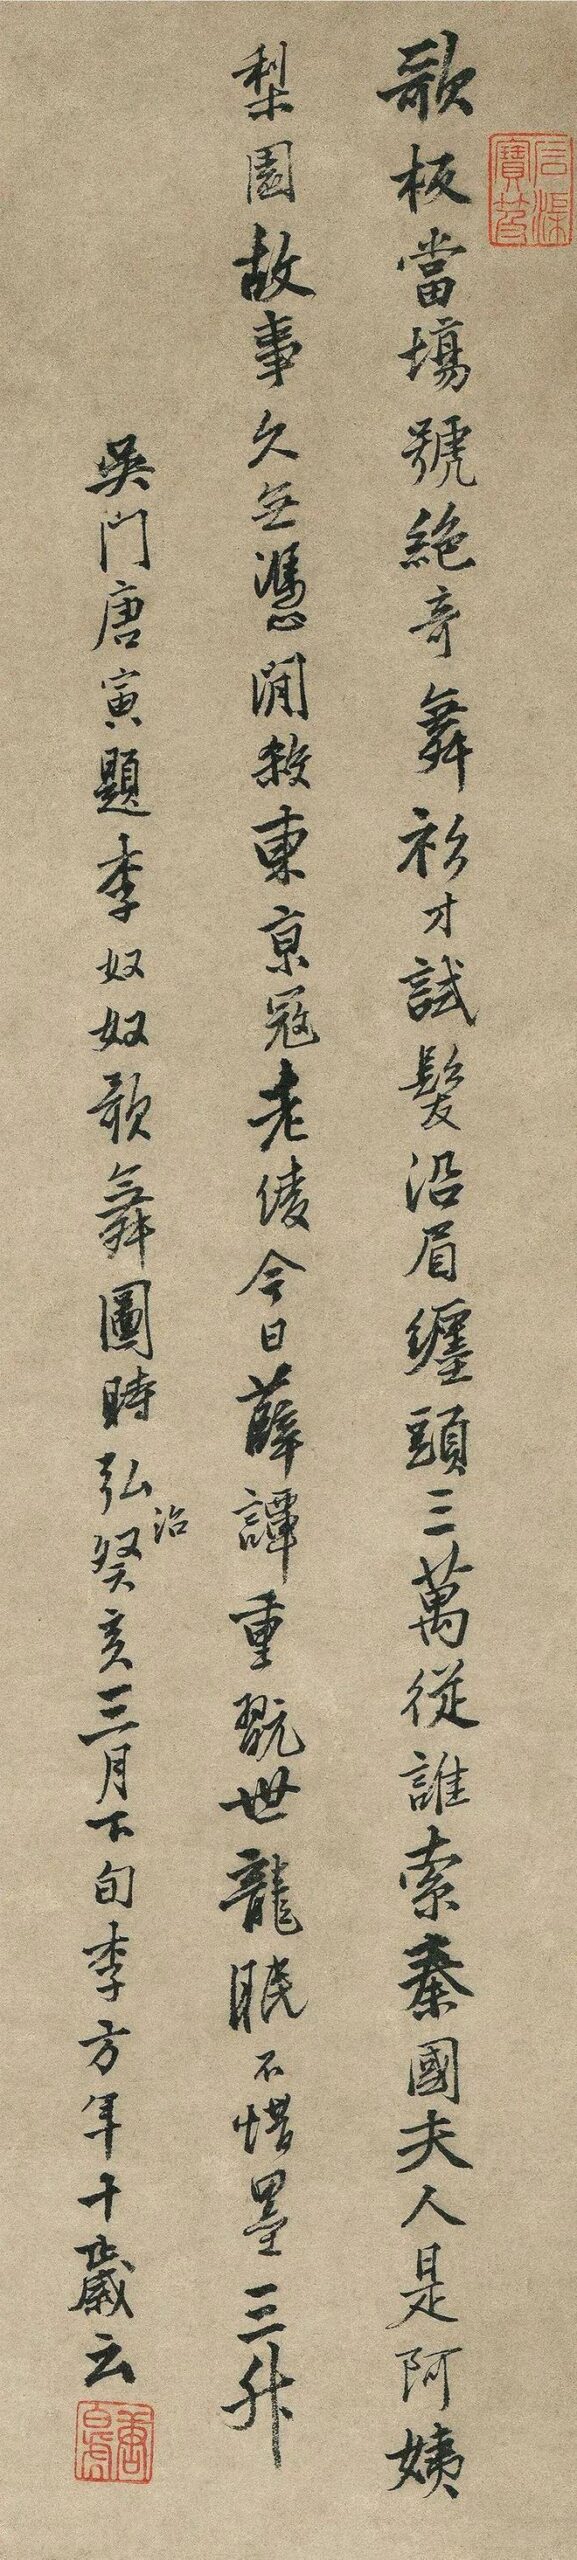 石渠寶笈
歌板當塲號絕奇舞衫才試髮沿眉纏頭三萬從誰索秦國夫人是阿姨
梨園故事久無憑閒殺東京冠老倰今日薛譚重翫世龍眠不惜墨三升
吳門唐寅題李奴奴歌舞圖時弘治癸亥三月下旬李方年十歲云
唐白虎